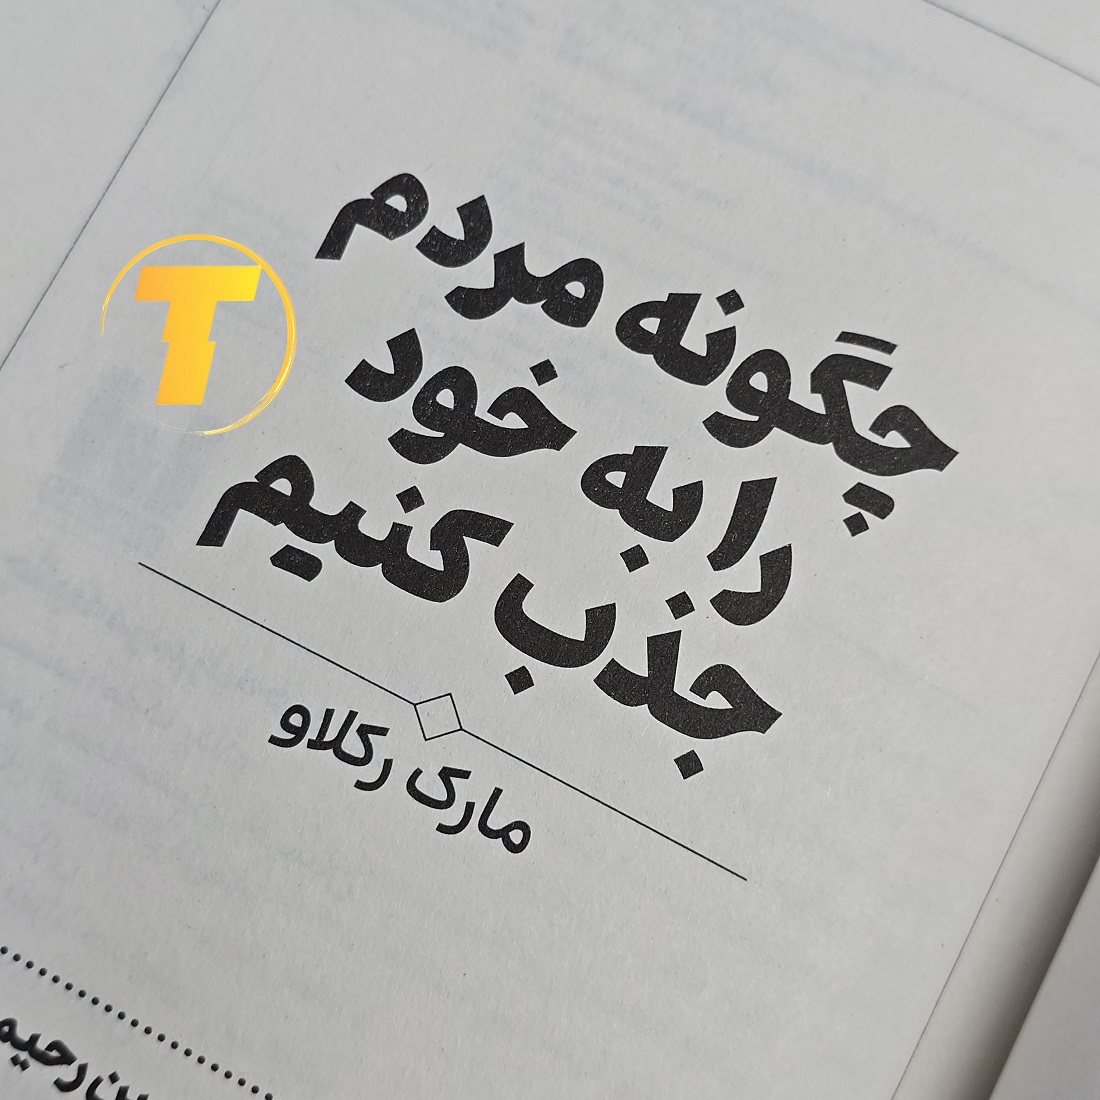 چگونه مردم
را به خود
جذب کنیم
مارک رکلاو
T